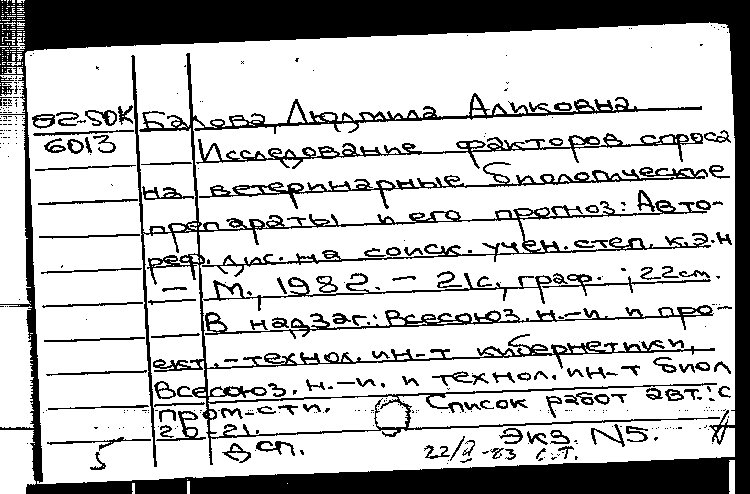 82-5DK Балова, Людмила Аликовна.
6013 Исследование факторов спроса
на ветеринарные биологические
препараты и его прогноз: Авто-
реф. дис. на соиск. учен. степ. к.э.н
- М., 1982. - 21с., граф. ; 22 см.
В надзаг.: Всесоюз. н.-и. и про-
ект.-технол. ин-т кибернетики,
Всесоюз. н.-и. и технол. ин-т биол
пром-сти. Список работ авт.: с
20-21. Экз. N5.
5 Дсп. 22/ -83 с.т.